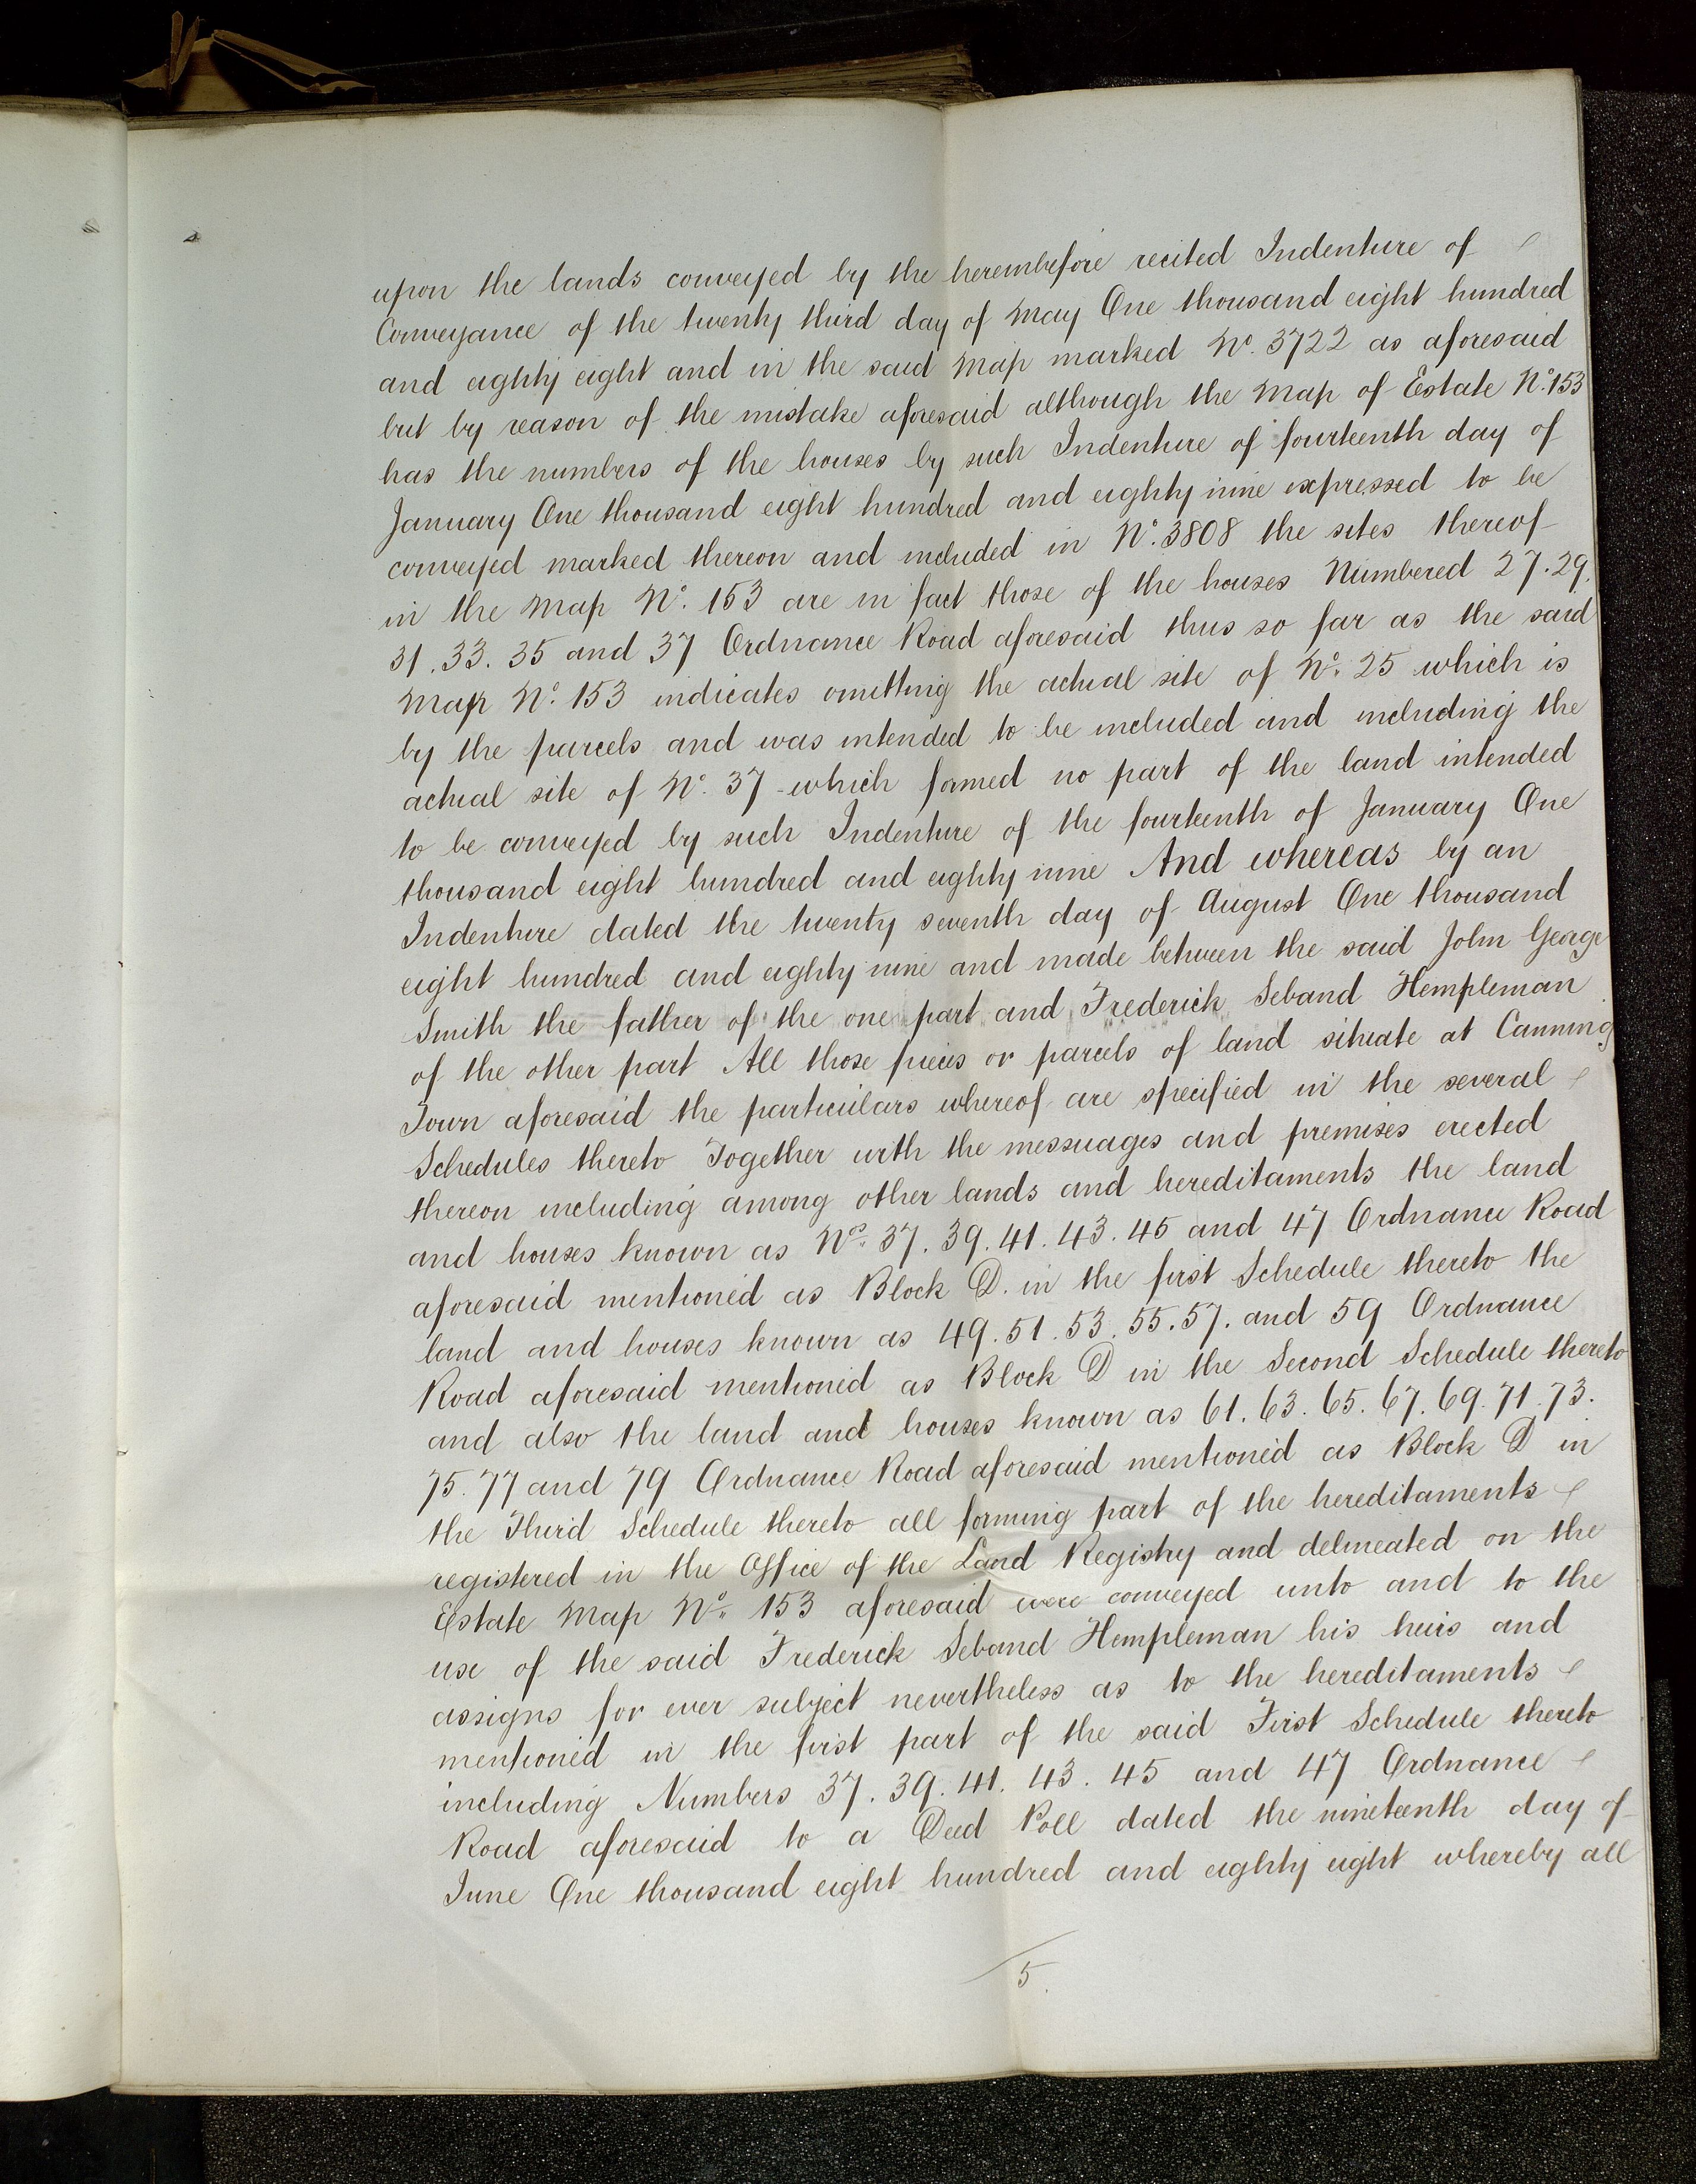 upon the lands conveyed by the hereinbefore recited Indenture of
Conveyance of the twenty third day of May One thousand eight hundred
and eighty eight and in the said Map marked No. 3722 as aforesaid
but by reason of the mistake aforesaid although the Map of Estate No. 153
has the numbers of the houses by such Indenture of fourteenth day of
January One thousand eight hundred and eighty nine expressed to be
conveyed marked thereon and included in No. 3808 the sites thereof
in the Map No. 153 are in fact those of the houses Numbered 27. 29.
31. 33. 35 and 37 Ordnance Road aforesaid thus so far as the said
Map No. 153 indicates omitting the actual site of No. 25 which is
by the parcels and was intended to be included and including the
actual site of No. 37 which formed no part of the land intended
to be conveyed by such Indenture of the fourteenth of January One
thousand eight hundred and eighty nine And whereas by an
Indenture dated the twenty seventh day of August One thousand
eight hundred and eighty nine and made between the said John George
Smith the father of the one part and Frederick Seband Hempleman
of the other part All those pieces or parcels of land situate at Canning
Town aforesaid the particulars whereof are specified in the several
Schedules thereto Together with the messuages and premises erected
thereon including among other lands and hereditaments the land
and houses known as Nos. 37. 39. 41. 43. 45 and 47 Ordnance Road
aforesaid mentioned as Block D. in the first Schedule thereto the
land and houses known as 49. 51. 53. 55. 57. and 59 Ordnance
Road aforesaid mentioned as Block D in the Second Schedule thereto
and also the land and houses known as 61. 63. 65. 67. 69. 71. 73.
75. 77 and 79 Ordnance Road aforesaid mentioned as Block D in
the Third Schedule thereto all forming part of the hereditaments
registered in the Office of the Land Registry and delineated on the
Estate Map No. 153 aforesaid were conveyed unto and to the
use of the said Frederick Seband Hempleman his heirs and
assigns for ever subject nevertheless as to the hereditaments
mentioned in the first part of the said First Schedule thereto
including Numbers 37. 39. 41. 43. 45 and 47 Ordnance
Road aforesaid to a Deed Poll dated the nineteenth day of
June One thousand eight hundred and eighty eight whereby all
5.